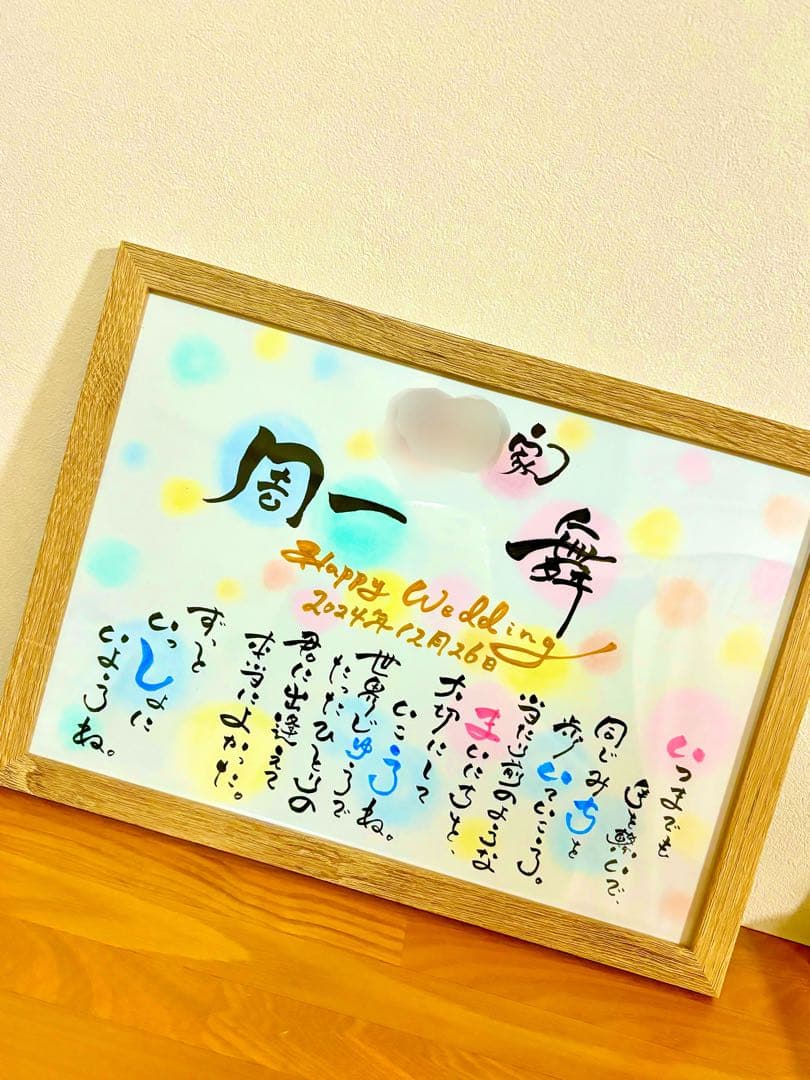 家
舞
周一
Happy Wedding
2024年12月26日
いつまでも
手を繋いで、
同じみちを
歩いていこう。
当たり前のような
まいにちを、
大切にして
いこうね。
世界じゅうで
たったひとりの
君に出逢えて
本当によかった。
ずっと
いっしょに
いようね。